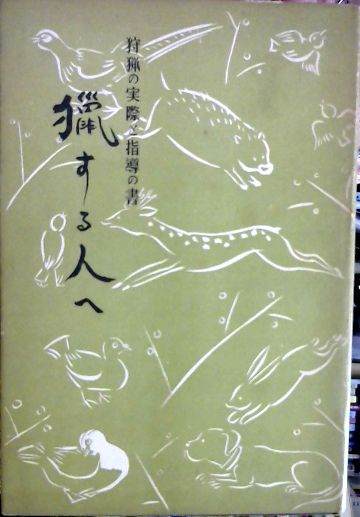 狩猟の実際と指導の書
猟する人へ